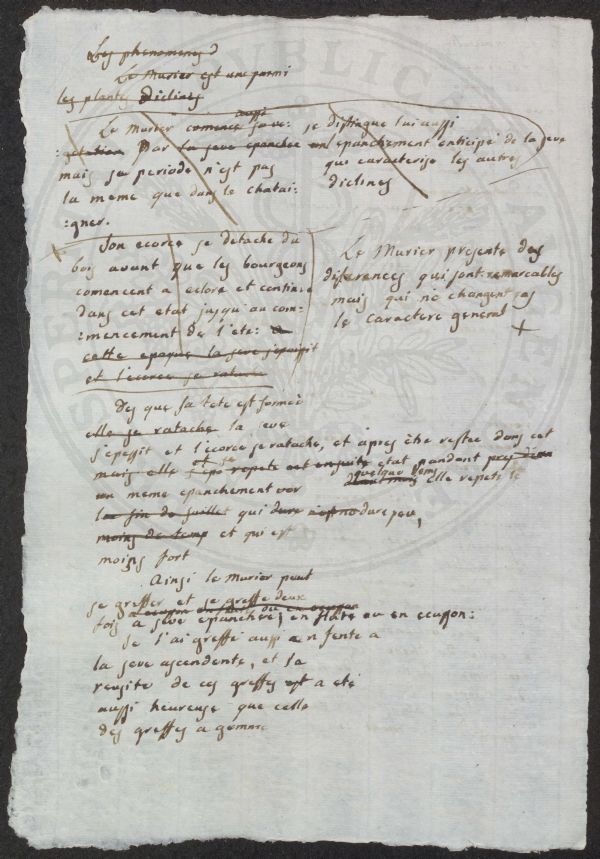 Les phenomenes
Le Murier est une parmi
les plantes Diclines
aussi
Le Murier comence
par la seve epanchee
mais sa periode n'est pas
la meme que dans le chatai-
:gner.
se distingue lui aussi
epanchement anticipé de la seve
qui caracterise les autres
diclines
Son ecorce se detache du
bois avant que les bourgeons
comencent a eclore et continue
dans cet etat jusqu'au com:
:mencement de l'eté: a
cette epoque la seve s'epaissit
et l'ecorce se ratache
Le Murier presente des
diferences qui sont remarcables
mais qui ne changent pas
le caractere general +
Des que sa tete est formée
elle se ratache la seve
s'epessit et l'ecorce se ratache, et apres être restée dans cet
mais elle repete ensuite etat pendant
quelque tems
un meme epanchement vor elle repete le
la fin de juillet qui dure peu,
moins de temp et qui est
moins fort
Ainsi le Murier peut
se greffer et se greffe deux
fois a seve epanchée, en flute ou en ecusson:
Je l'ai greffé aussi en fente a
la seve ascendente, et la
reusite de ces greffes est a eté
aussi heureuse que celle
des greffes a gemme